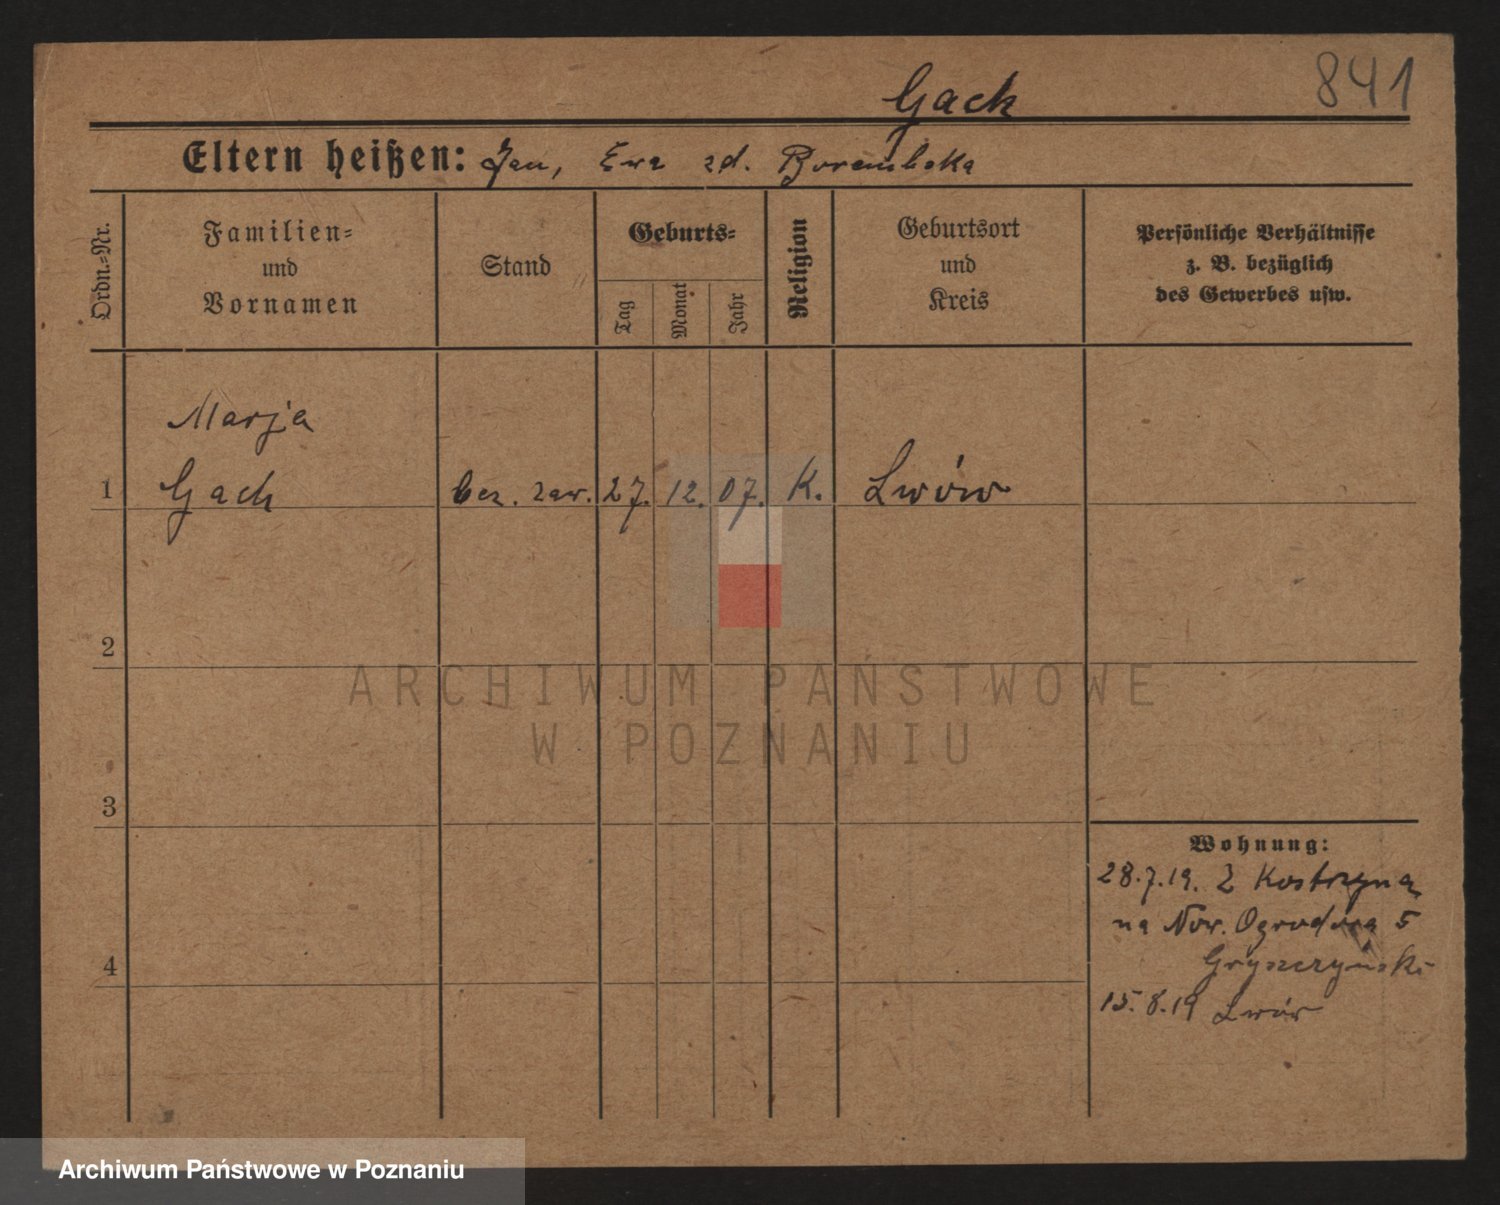 Gack
841
Eltern heißen: Jan, Ewa zd. Borembska
Ordn.-Nr.
Familien-
und
Vornamen
Stand
Geburts-
Tag
Monat
Jahr
Religion
Geburtsort
und
Kreis
Persönliche Verhältnisse
z. B. bezüglich
des Gewerbes usw.
Marja
1 Gach bez. zaw. 27. 12. 07. K. Lwów
2
3
4
Wohnung:
28.7.19. Z Kostrzyna
na Now. Ogrodowa 5
Gryszczyński
15.8.19 Lwów
ARCHIWUM PAŃSTWOWE
W POZNANIU
Archiwum Państwowe w Poznaniu